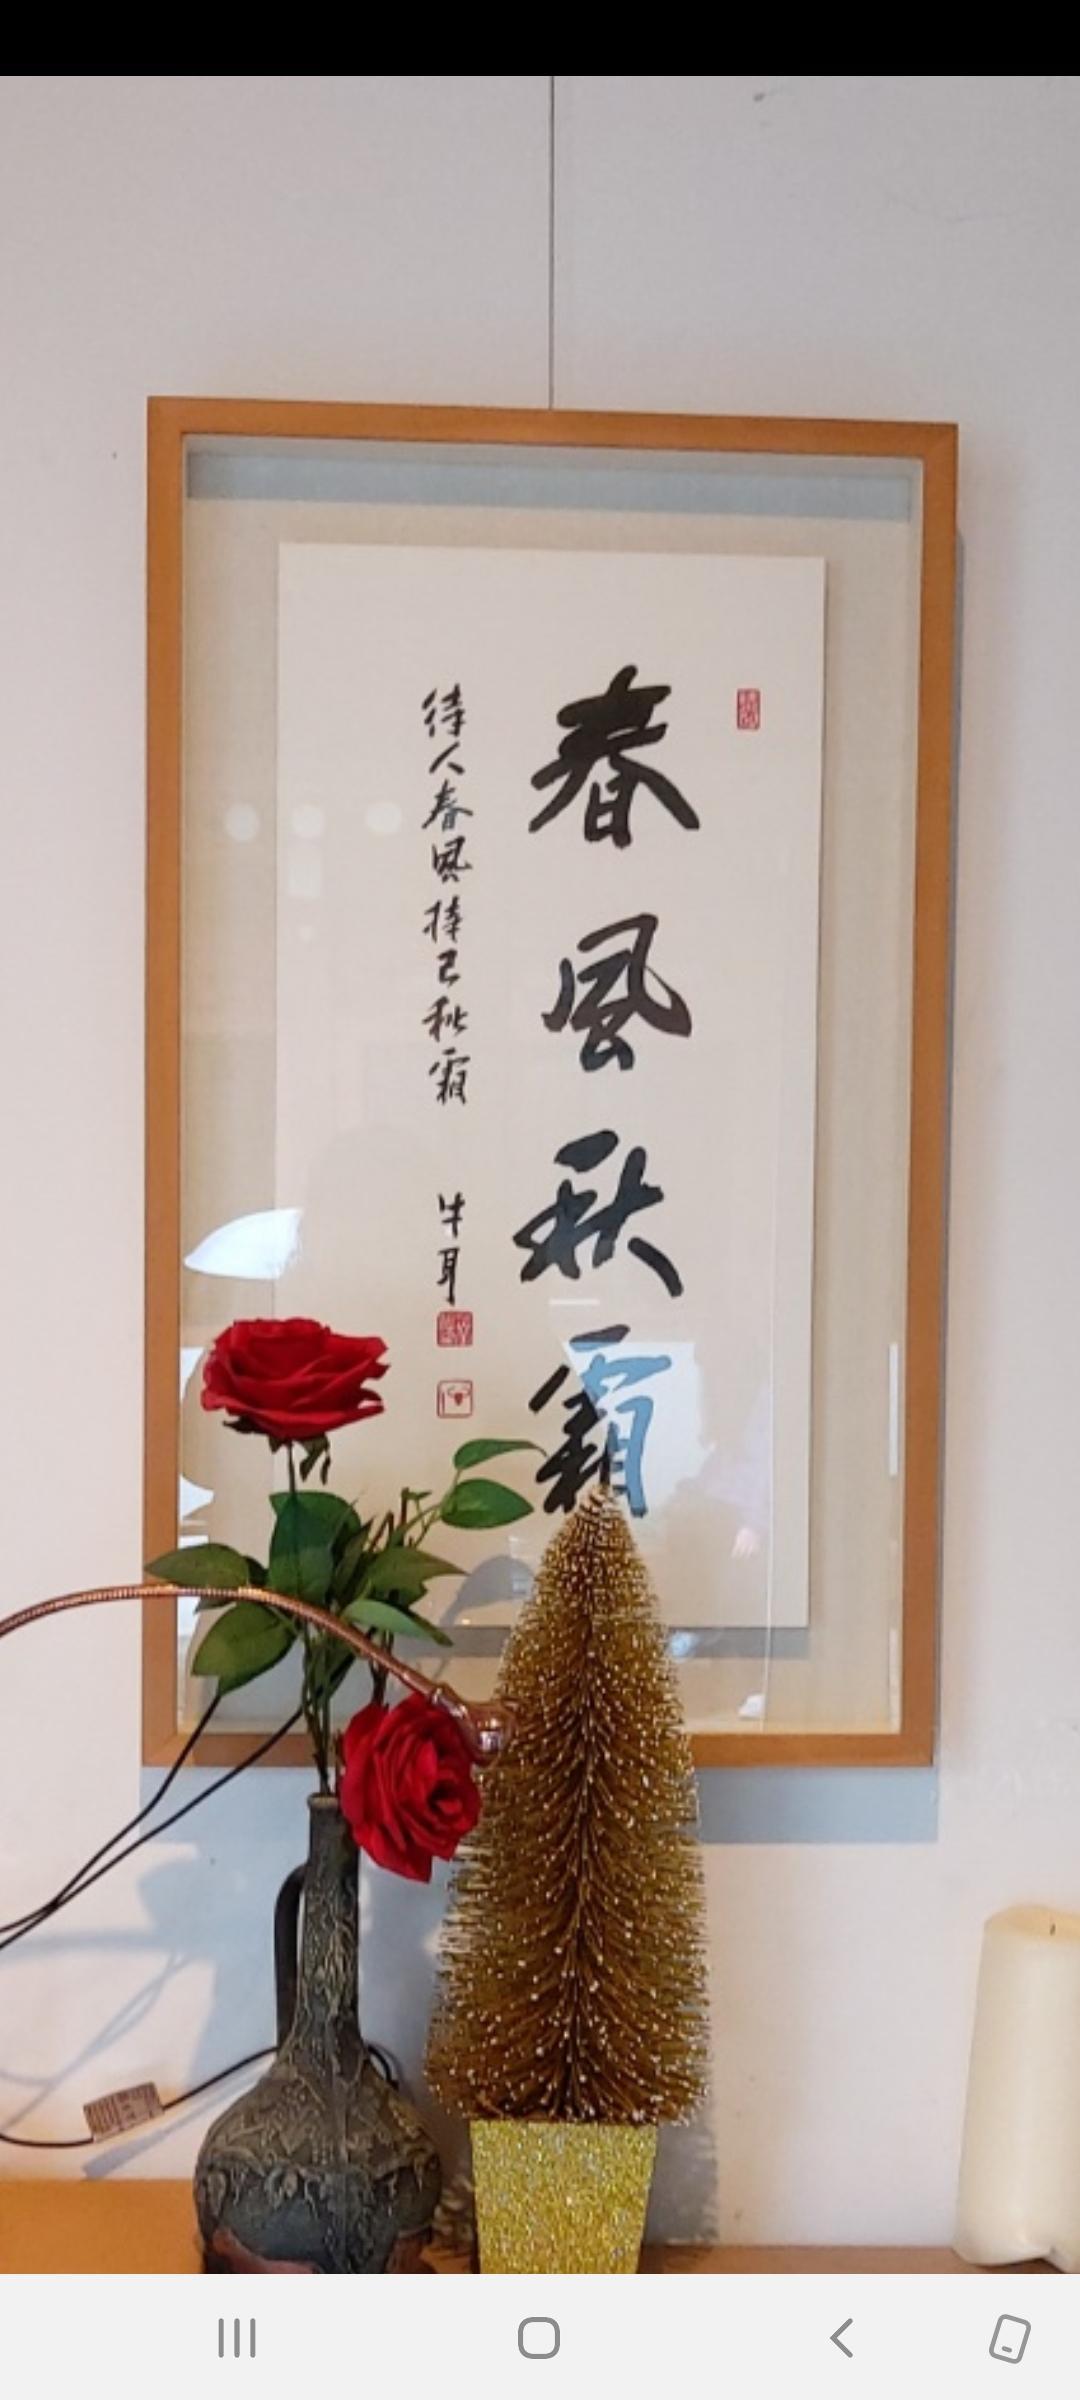 春風秋霜
待人春風 持己秋霜
牛耳